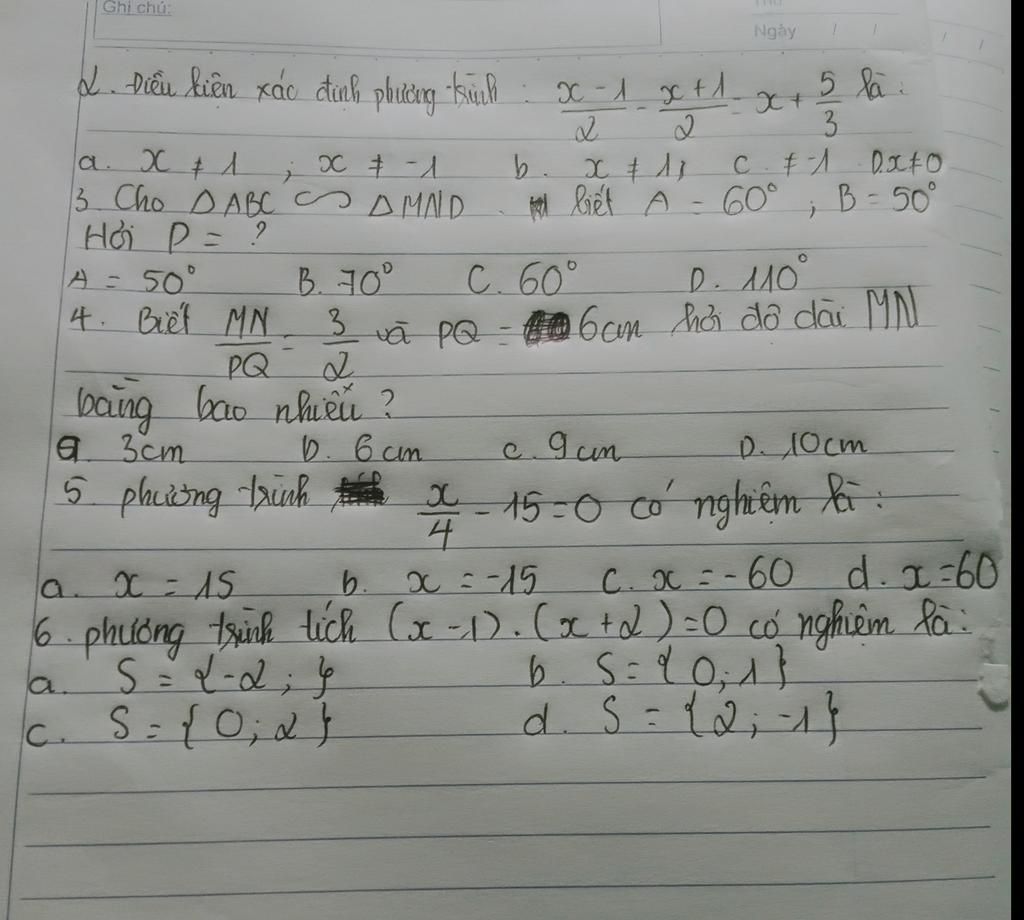 Ghi chú:
Thứ
Ngày / /
2. Điều kiện xác định phương trình: \frac{x-1}{2} - \frac{x+1}{2} = x + \frac{5}{3} là:
a. x ≠ 1 ; x ≠ -1 b. x ≠ 1; C. ≠ -1 D.x≠0
3. Cho △ABC ∽ △MND. biết A = 60° ; B = 50°
Hỏi D = ?
A = 50° B. 70° C. 60° D. 110°
4. Biết \frac{MN}{PQ} = \frac{3}{2} và PQ = 6cm hỏi độ dài MN
bằng bao nhiêu ?
a. 3cm b. 6cm c. 9cm D. 10cm
5. phương trình \frac{x}{4} - 15 = 0 có nghiệm là:
a. x = 15 b. x = -15 c. x = -60 d. x = 60
6. phương trình tích (x-1).(x+2)=0 có nghiệm là:
a. S = {-2; } b. S = {0;1}
c. S = {0; 2} d. S = {2; -1}